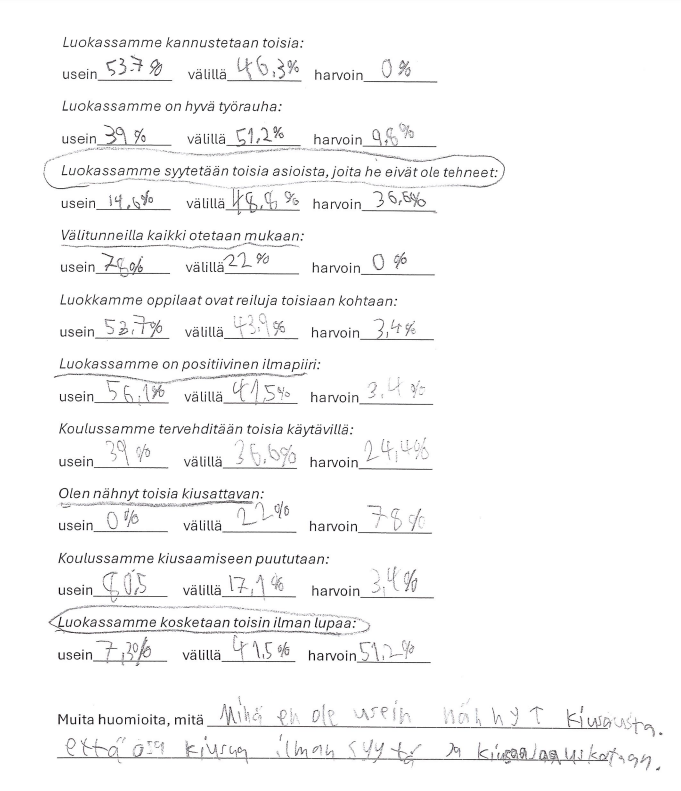 Luokassamme kannustetaan toisia:
usein 53.7 % välillä 46,3% harvoin 0 %
Luokassamme on hyvä työrauha:
usein 39 % välillä 51,2% harvoin 9,8%
Luokassamme syytetään toisia asioista, joita he eivät ole tehneet:
usein 14,6% välillä 48,8 % harvoin 36,6%
Välitunneilla kaikki otetaan mukaan:
usein 78% välillä 22 % harvoin 0 %
Luokkamme oppilaat ovat reiluja toisiaan kohtaan:
usein 53,7% välillä 43,9% harvoin 3,4%
Luokassamme on positiivinen ilmapiiri:
usein 56,1% välillä 41,5% harvoin 3.4 %
Koulussamme tervehditään toisia käytävillä:
usein 39 % välillä 36,6% harvoin 24,4%
Olen nähnyt toisia kiusattavan:
usein 0 % välillä 22% harvoin 78 %
Koulussamme kiusaamiseen puututaan:
usein 80,5 välillä 17,1% harvoin 3,4%
Luokassamme kosketaan toisin ilman lupaa:
usein 7,3% välillä 41,5% harvoin 51,2%
Muita huomioita, mitä Minä en ole usein nähnyt kiusausta.
että osa kiusaa ilman syytä ja